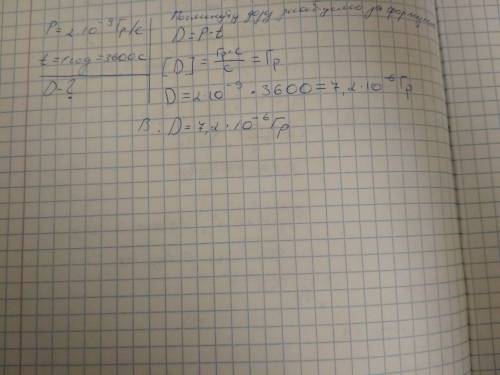 P = 2 · 10⁻⁹ Гр/с
t = 1год = 3600с
D - ?
Поглинуту дозу знайдемо за формулою
D = P · t
[D] = Гр·с/с = Гр
D = 2·10⁻⁹ · 3600 = 7,2·10⁻⁶ Гр
В. D = 7,2 · 10⁻⁶ Гр